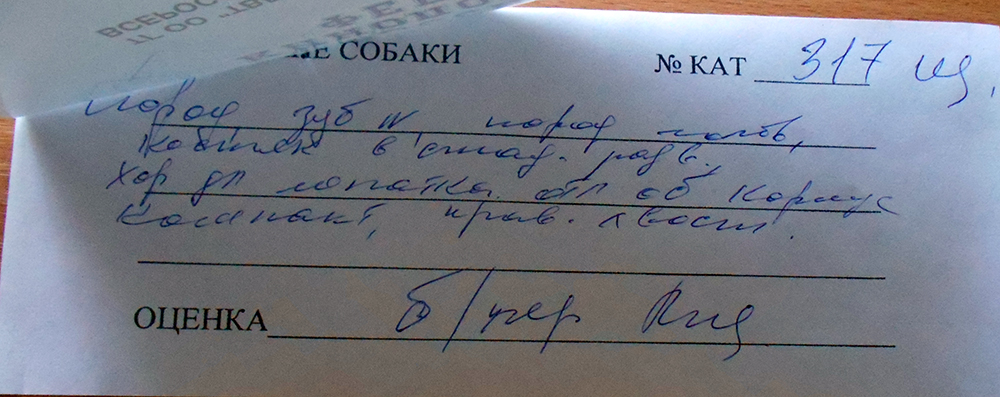 ВСЕРОС
ТГ ОО "ТВЕ
ФЕ
КИНОЛО
Е СОБАКИ № КАТ 317 щ.
пород зуб N пород голов,
Кобелек в стад. разв.,
Хор дл лопатка. отл об корпус
Компакт, прав. хвост.
ОЦЕНКА б/пер Кщ